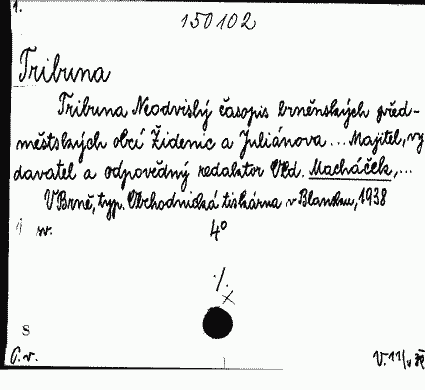 1.
150102
Tribuna
Tribuna Neodvislý časopis brněnských před-
městských obcí Židenic a Juliánova ... Majitel, vy
davatel a odpovědný redaktor Vld. Macháček, ...
V Brně, typ. Obchodnická tiskárna v Blansku, 1938
sv. 4°
S
C. v.